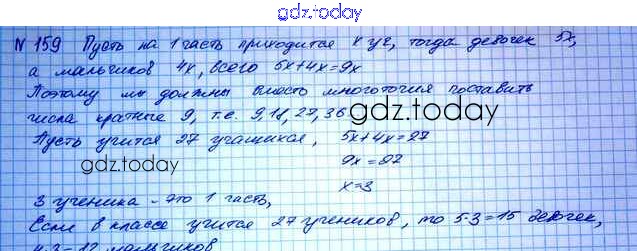 gdz.today
№ 159 Пусть на 1 часть приходится x уч, тогда девочек 5x,
а мальчиков 4x, всего 5x+4x=9x
Поэтому мы должны вместо многоточия поставить
числа кратные 9, т.е. 9, 18, 27, 36
gdz.today
Пусть учится 27 учащихся, 5x+4x=27
gdz.today
9x=27
x=3
3 ученика - это 1 часть,
Если в классе учится 27 учеников, то 5·3=15 девочек,
4·3=12 мальчиков